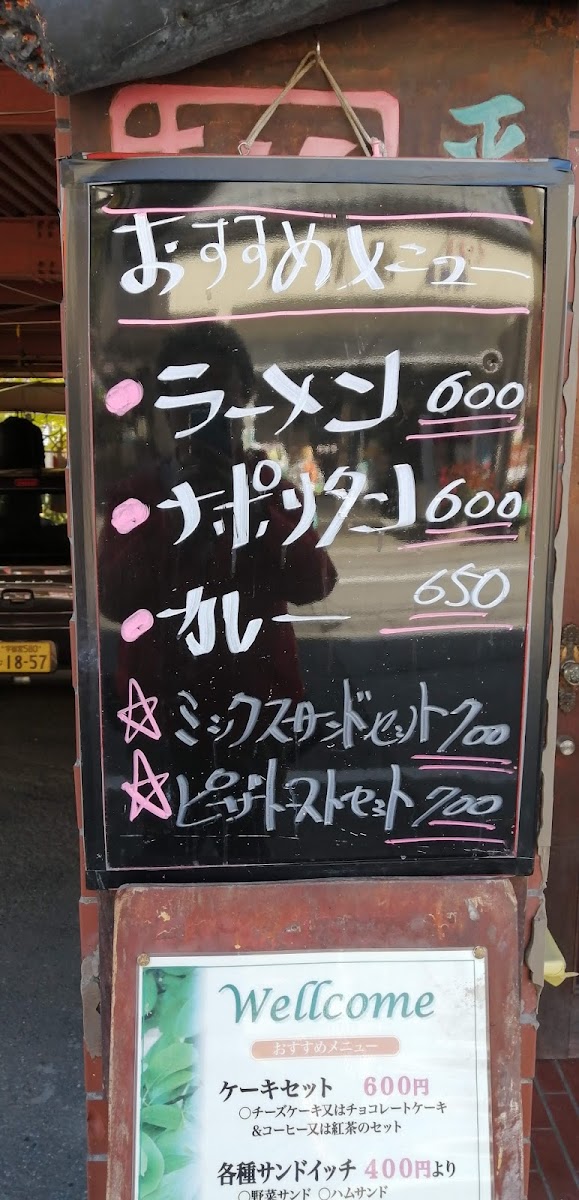 おすすめメニュー
ラーメン 600
ナポリタン 600
カレー 650
ミックスサンドセット 700
ピザトーストセット 700
Wellcome
おすすめメニュー
ケーキセット 600円
○チーズケーキ又はチョコレートケーキ
&コーヒー又は紅茶のセット
各種サンドイッチ 400円より
○野菜サンド ○ハムサンド
18-57